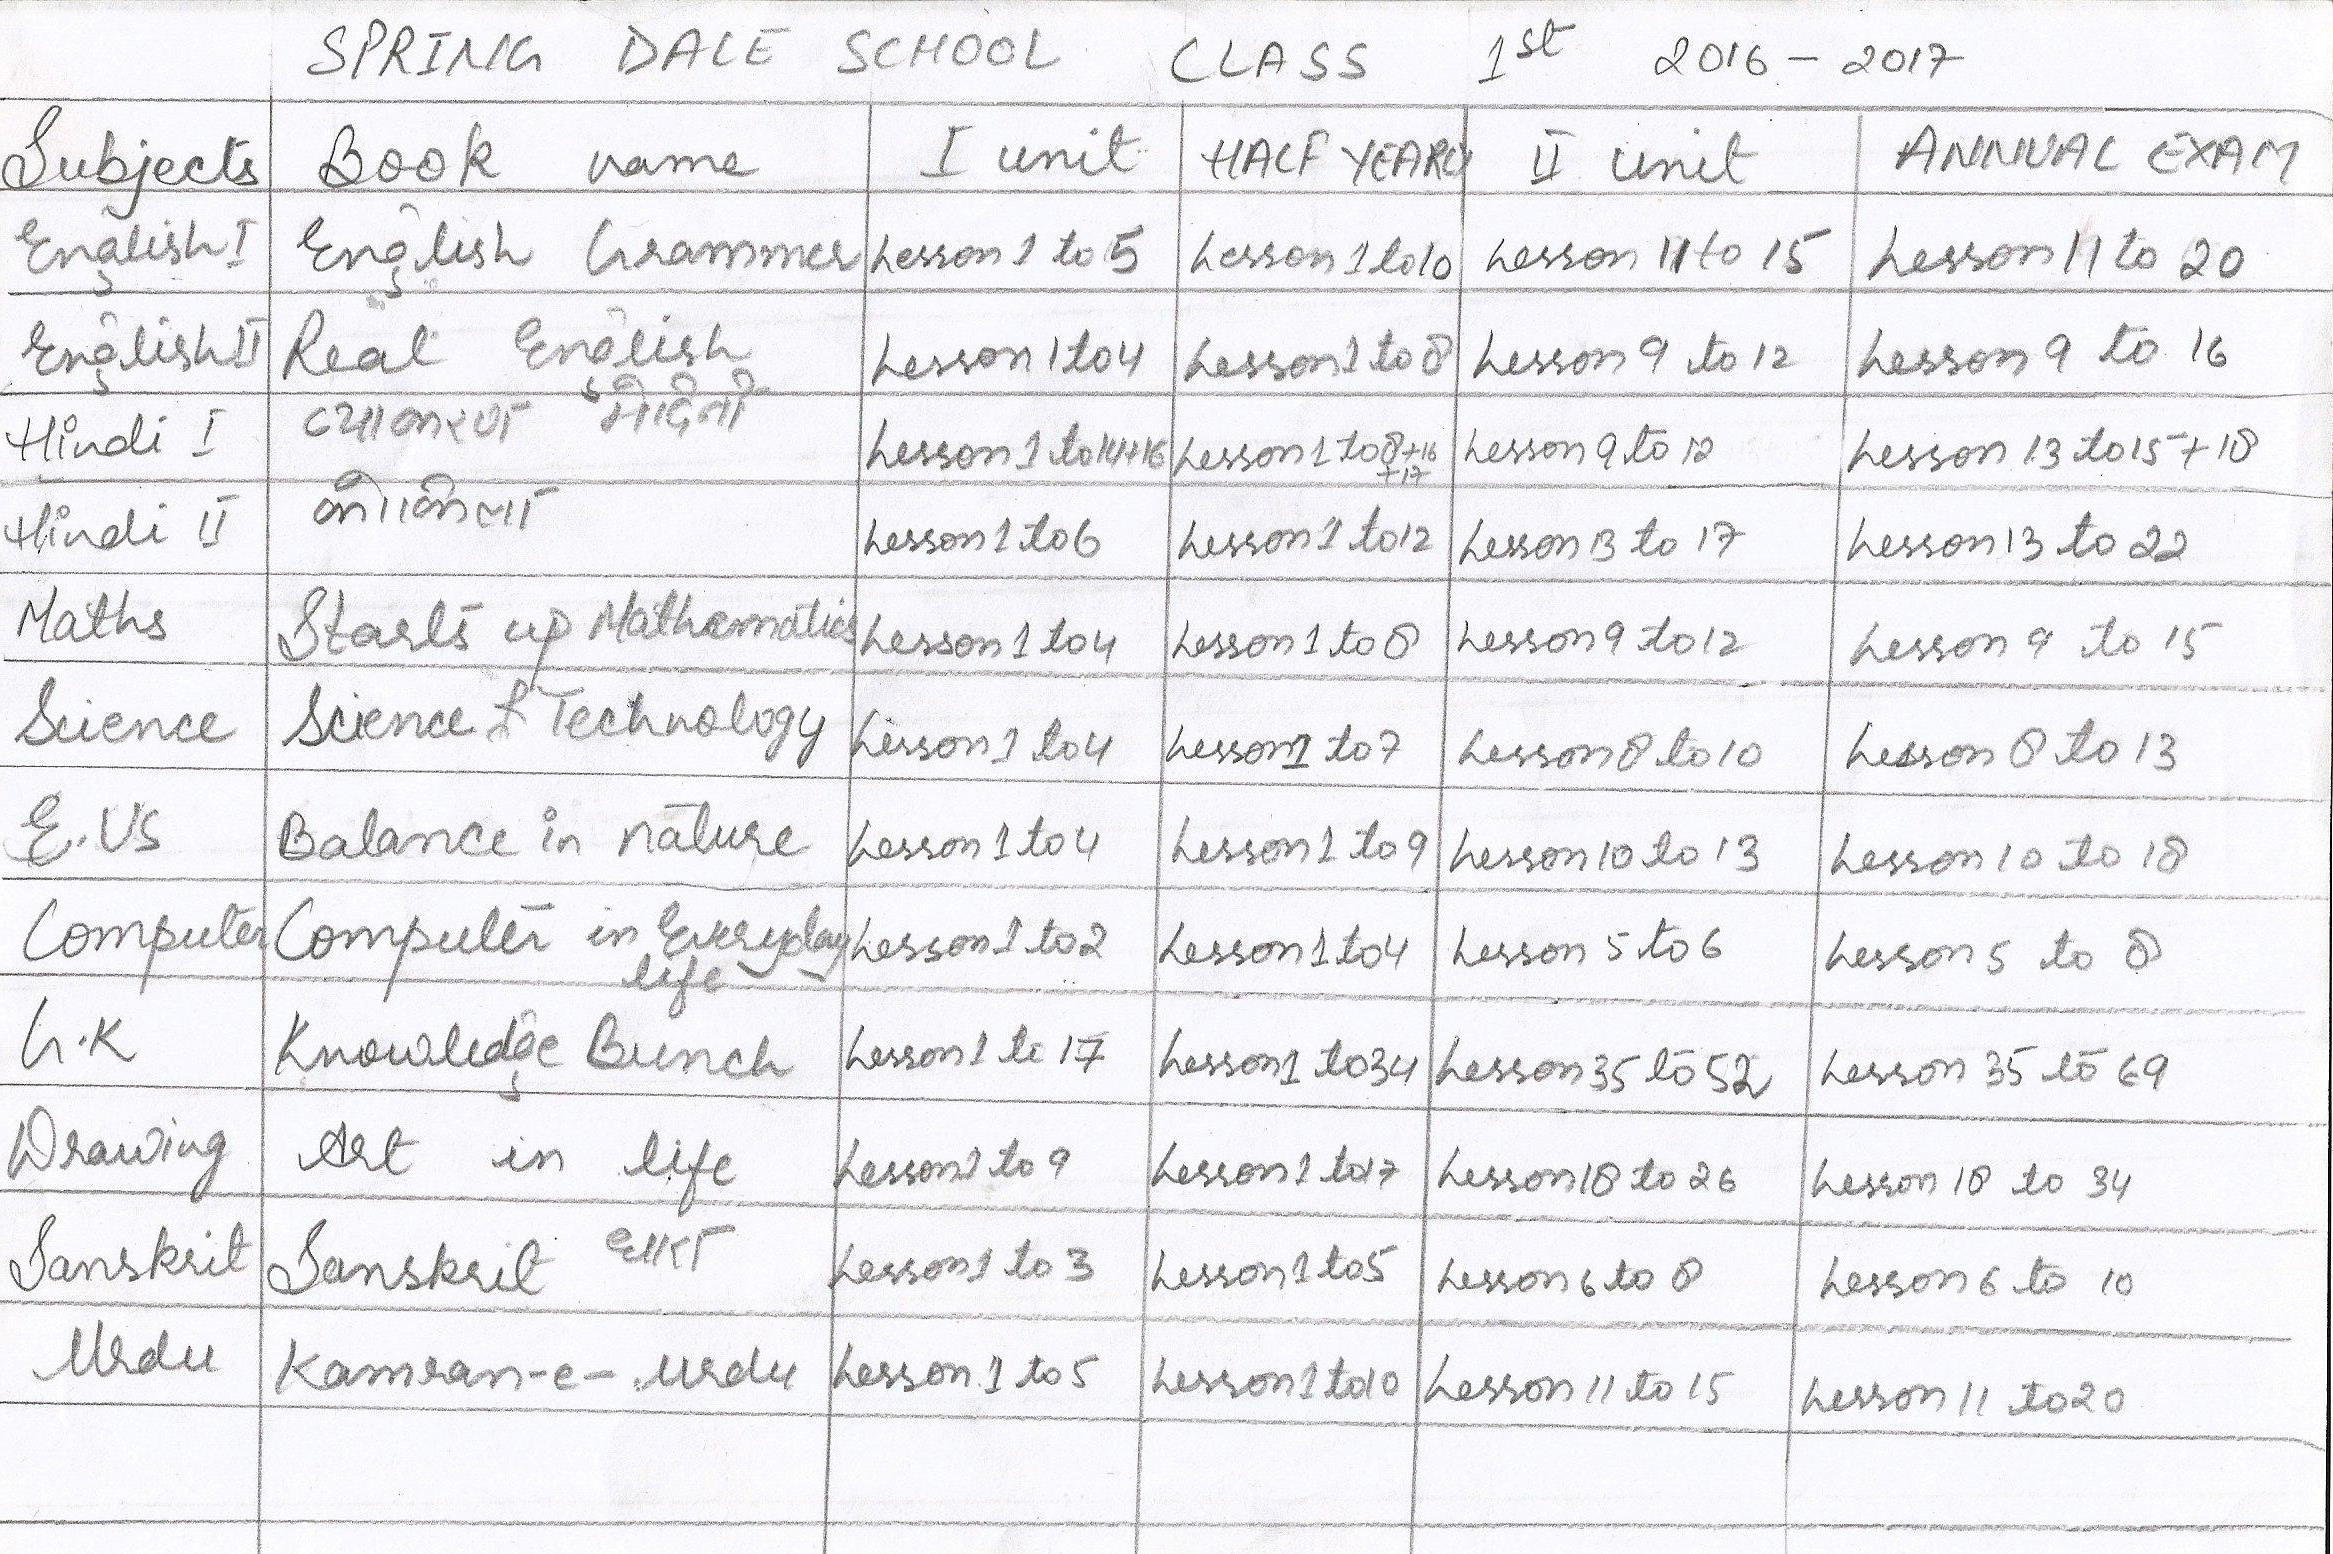 SPRING DALE SCHOOL CLASS 1st 2016 - 2017
Subjects Book name I unit HALF YEARLY II unit ANNUAL EXAM
English I English Grammer Lesson 1 to 5 Lesson 1 to 10 Lesson 11 to 15 Lesson 11 to 20
English II Real English Lesson 1 to 4 Lesson 1 to 8 Lesson 9 to 12 Lesson 9 to 16
Hindi I व्याकरण Lesson 1 to 14+16 Lesson 1 to 8+16 +17 Lesson 9 to 12 Lesson 13 to 15 + 18
Hindi II Lesson 1 to 6 Lesson 1 to 12 Lesson 13 to 17 Lesson 13 to 22
Maths Starts up Mathematics Lesson 1 to 4 Lesson 1 to 8 Lesson 9 to 12 Lesson 9 to 15
Science Science & Technology Lesson 1 to 4 Lesson 1 to 7 Lesson 8 to 10 Lesson 8 to 13
E.VS Balance in nature Lesson 1 to 4 Lesson 1 to 9 Lesson 10 to 13 Lesson 10 to 18
Computer Computer in Everyday life Lesson 1 to 2 Lesson 1 to 4 Lesson 5 to 6 Lesson 5 to 8
G.K Knowledge Bunch Lesson 1 to 17 Lesson 1 to 34 Lesson 35 to 52 Lesson 35 to 69
Drawing Art in life Lesson 1 to 9 Lesson 1 to 17 Lesson 18 to 26 Lesson 18 to 34
Sanskrit Sanskrit धारा Lesson 1 to 3 Lesson 1 to 5 Lesson 6 to 8 Lesson 6 to 10
Urdu Kamran-e-Urdu Lesson 1 to 5 Lesson 1 to 10 Lesson 11 to 15 Lesson 11 to 20